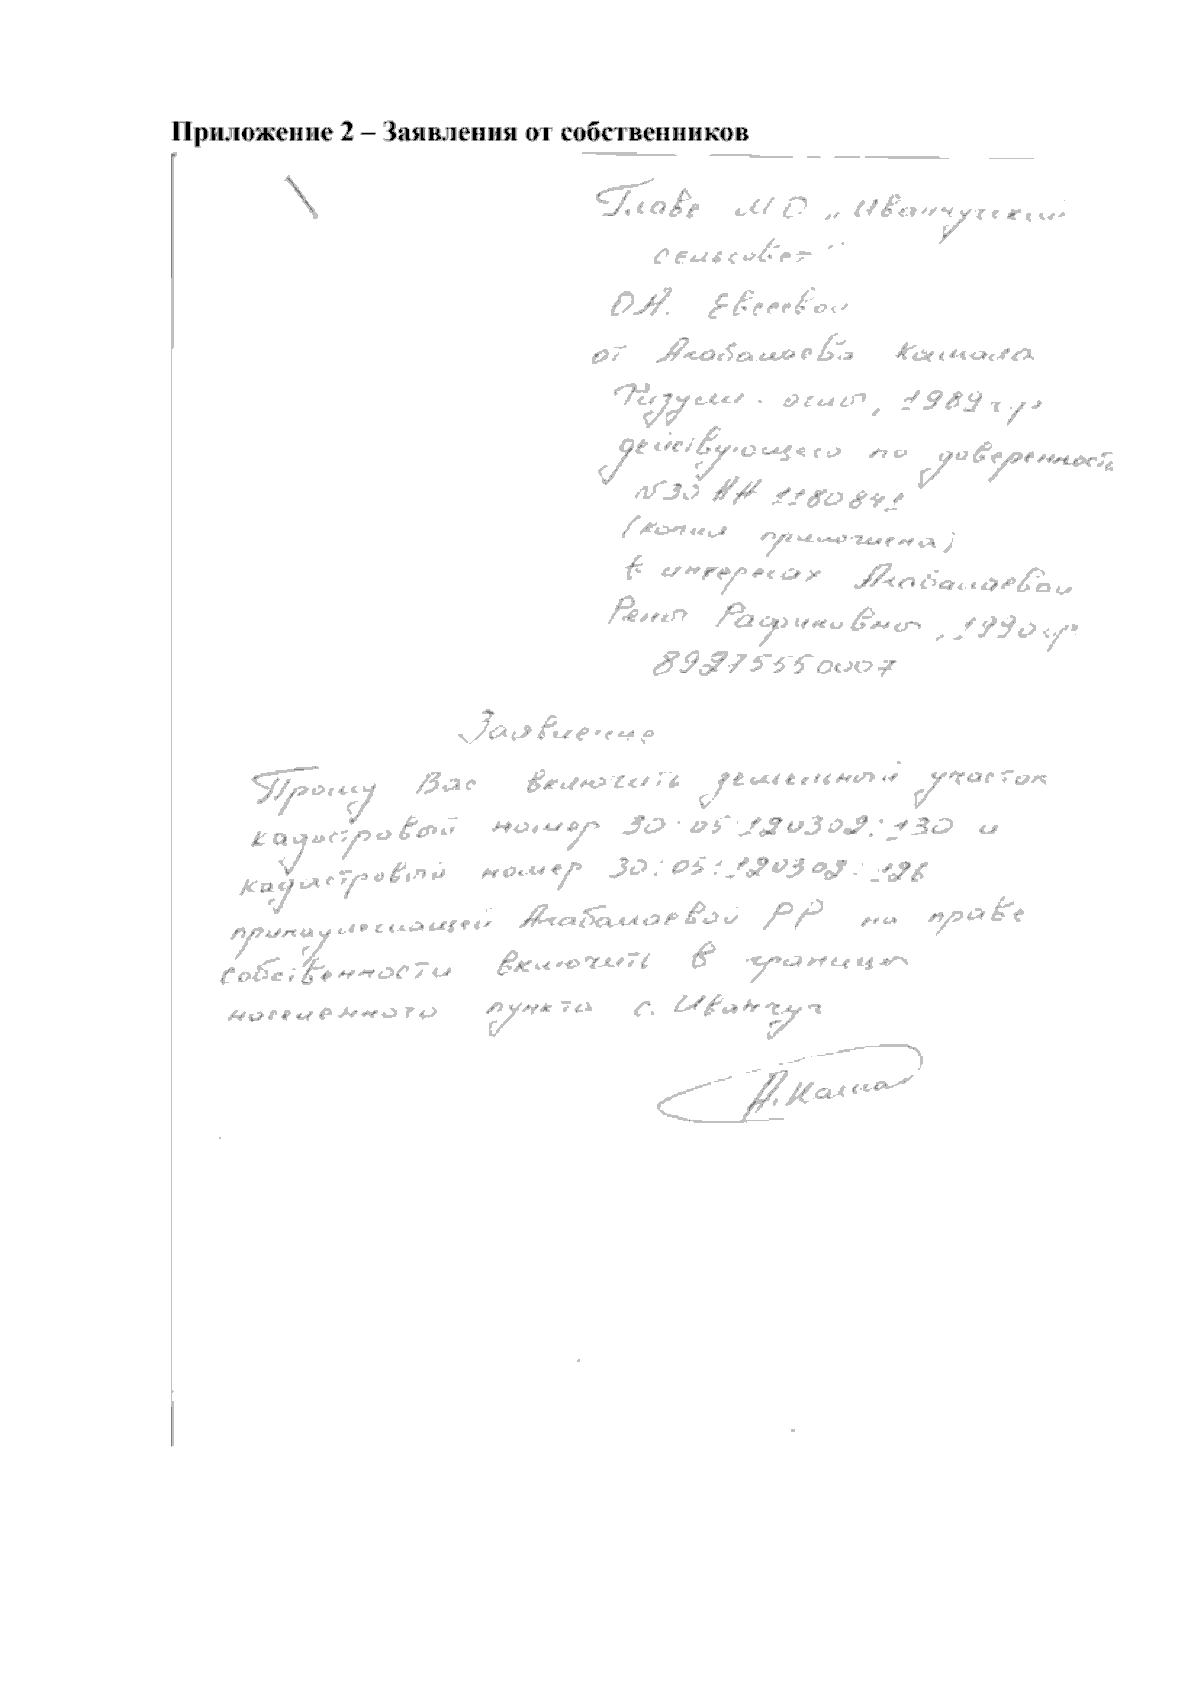 Приложение 2 – Заявления от собственников
Главе МО "Иванчугский
сельсовет"
О.А. Евсеевой
от Акабалаева Камала
оглы, 1989 г.р
действующего по доверенности
№ 30 АА 1180841
(копия приложена)
в интересах Акабалаевой
Рены Рафиковны, 1990 гр
89275550007
Заявление
Прошу Вас включить земельный участок
кадастровый номер 30:05:120302:130 и
кадастровый номер 30:05:120302:126
принадлежащей Акабалаевой РР на праве
собственности включить в границы
населенного пункта с. Иванчуг